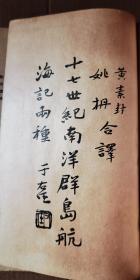 黃素封
姚枬合譯
十七世紀南洋群島航
海記兩種 于右任